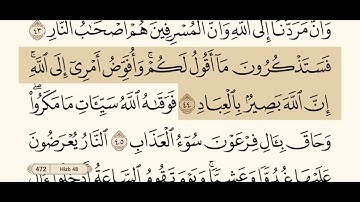 وَأَنَّ مَرَدَّنَآ إِلَى ٱللَّهِ وَأَنَّ ٱلْمُسْرِفِينَ هُمْ أَصْحَٰبُ ٱلنَّارِ ٤٣
فَسَتَذْكُرُونَ مَآ أَقُولُ لَكُمْ ۚ وَأُفَوِّضُ أَمْرِىٓ إِلَى ٱللَّهِ ۚ
إِنَّ ٱللَّهَ بَصِيرٌۢ بِٱلْعِبَادِ ٤٤ فَوَقَىٰهُ ٱللَّهُ سَيِّـَٔاتِ مَا مَكَرُوا۟ ۖ
وَحَاقَ بِـَٔالِ فِرْعَوْنَ سُوٓءُ ٱلْعَذَابِ ٤٥ ٱلنَّارُ يُعْرَضُونَ
عَلَيْهَا غُدُوًّا وَعَشِيًّا ۖ وَيَوْمَ تَقُومُ ٱلسَّاعَةُ أَدْخِلُوٓا۟ ءَالَ
472 Hizb 48